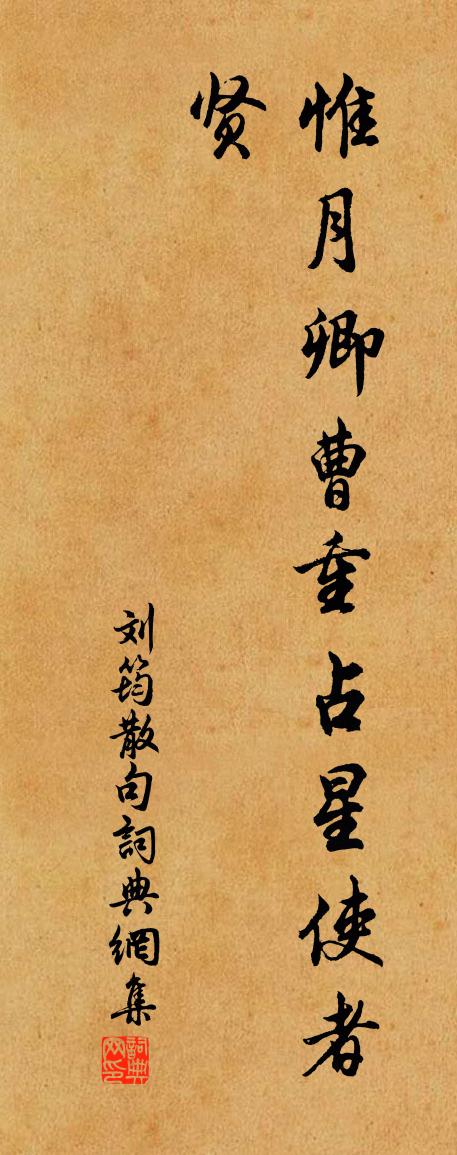 惟月卿曹重占星使者
贤
刘筠散句詞典網集
詞典网印